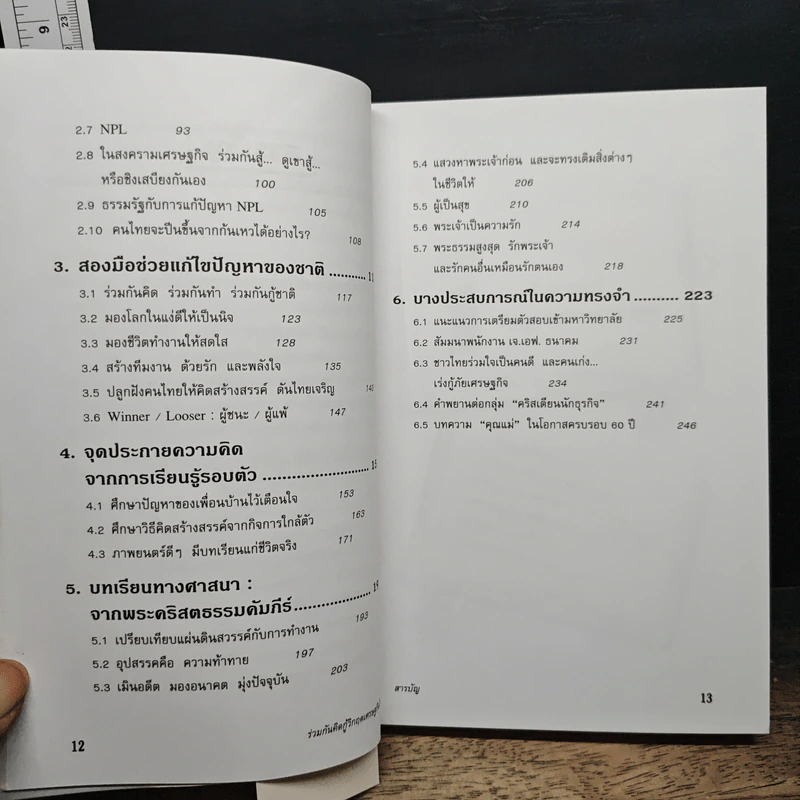 9
23
22
2.7 NPL 93
2.8 ในสงครามเศรษฐกิจ ร่วมกันสู้... ดูเขาสู้...
หรือชิงเสบียงกันเอง 100
2.9 ธรรมรัฐกับการแก้ปัญหา NPL 105
2.10 คนไทยจะปีนขึ้นจากก้นเหวได้อย่างไร? 108
3. สองมือช่วยแก้ไขปัญหาของชาติ ..........11
3.1 ร่วมกันคิด ร่วมกันทำ ร่วมกันกู้ชาติ 117
3.2 มองโลกในแง่ดีให้เป็นนิจ 123
3.3 มองชีวิตทำงานให้สดใส 128
3.4 สร้างทีมงาน ด้วยรัก และพลังใจ 135
3.5 ปลูกฝังคนไทยให้คิดสร้างสรรค์ ดันไทยเจริญ 140
3.6 Winner / Looser : ผู้ชนะ / ผู้แพ้ 147
4. จุดประกายความคิด
จากการเรียนรู้รอบตัว ....................15
4.1 ศึกษาปัญหาของเพื่อนบ้านไว้เตือนใจ 153
4.2 ศึกษาวิธีคิดสร้างสรรค์จากกิจการใกล้ตัว 163
4.3 ภาพยนตร์ดีๆ มีบทเรียนแก่ชีวิตจริง 171
5. บทเรียนทางศาสนา :
จากพระคริสตธรรมคัมภีร์..............19
5.1 เปรียบเทียบแผ่นดินสวรรค์กับการทำงาน 193
5.2 อุปสรรคคือ ความท้าทาย 197
5.3 เมินอดีต มองอนาคต มุ่งปัจจุบัน 203
12
ร่วมกันคิดกู้วิกฤตเศรษฐกิจ
5.4 แสวงหาพระเจ้าก่อน และจะทรงเติมสิ่งต่างๆ
ในชีวิตให้ 206
5.5 ผู้เป็นสุข 210
5.6 พระเจ้าเป็นความรัก 214
5.7 พระธรรมสูงสุด รักพระเจ้า
และรักคนอื่นเหมือนรักตนเอง 218
6. บางประสบการณ์ในความทรงจำ .......... 223
6.1 แนะแนวการเตรียมตัวสอบเข้ามหาวิทยาลัย 225
6.2 สัมมนาพนักงาน เจ.เอฟ. ธนาคม 231
6.3 ชาวไทยร่วมใจเป็นคนดี และคนเก่ง...
เร่งกู้ภัยเศรษฐกิจ 234
6.4 คำพยานต่อกลุ่ม "คริสเตียนนักธุรกิจ" 241
6.5 บทความ "คุณแม่" ในโอกาสครบรอบ 60 ปี 246
สารบัญ
13